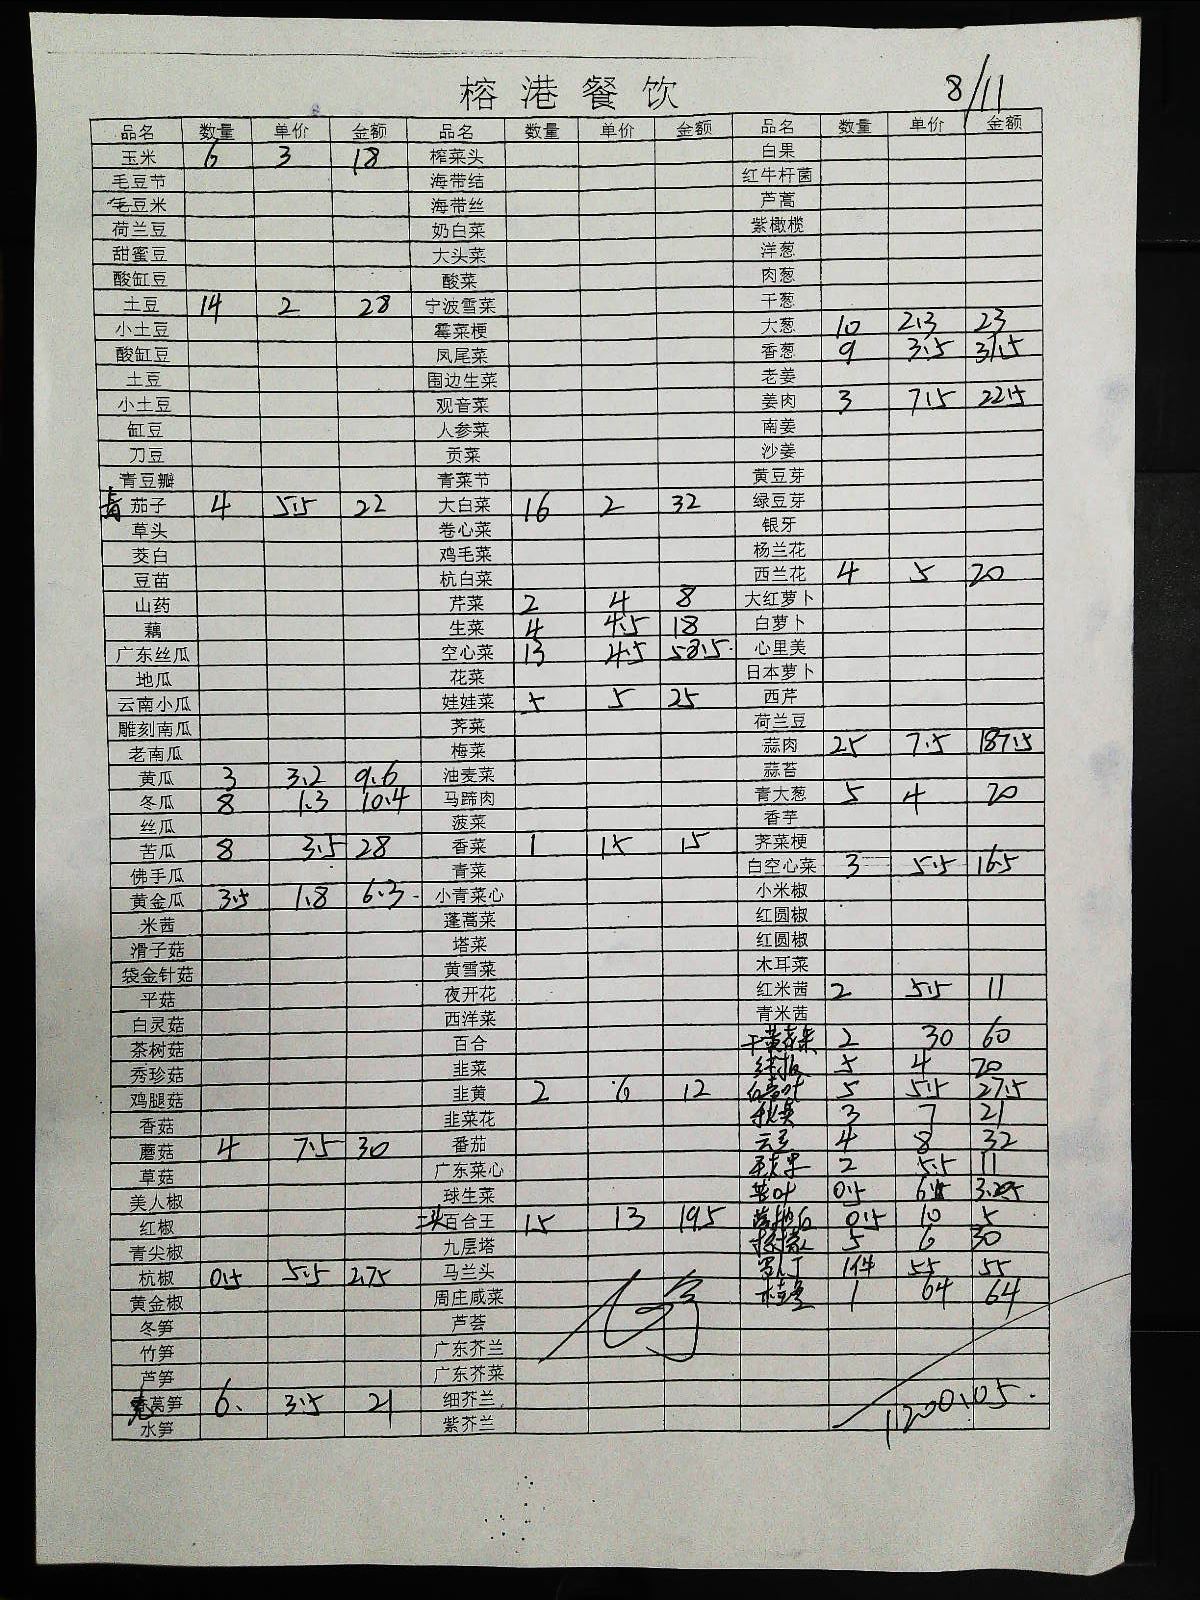 榕港餐饮
8/11
品名 数量 单价 金额 品名 数量 单价 金额 品名 数量 单价 金额
玉米 6 3 18 榨菜头 白果
毛豆节 海带结 红牛杆菌
毛豆米 海带丝 芦蒿
荷兰豆 奶白菜 紫橄榄
甜蜜豆 大头菜 洋葱
酸缸豆 酸菜 肉葱
土豆 14 2 28 宁波雪菜 干葱
小土豆 霉菜梗 大葱 10 2.3 23
酸缸豆 凤尾菜 香葱 9 3.5 31.5
土豆 围边生菜 老姜
小土豆 观音菜 姜肉 3 7.5 22.5
缸豆 人参菜 南姜
刀豆 贡菜 沙姜
青豆瓣 青菜节 黄豆芽
青茄子 4 5.5 22 大白菜 16 2 32 绿豆芽
草头 卷心菜 银牙
茭白 鸡毛菜 杨兰花
豆苗 杭白菜 西兰花 4 5 20
山药 芹菜 2 4 8 大红萝卜
藕 生菜 4 4.5 18 白萝卜
广东丝瓜 空心菜 13 4.5 58.5 心里美
地瓜 花菜 日本萝卜
云南小瓜 娃娃菜 5 5 25 西芹
雕刻南瓜 荠菜 荷兰豆
老南瓜 梅菜 蒜肉 25 7.5 187.5
黄瓜 3 3.2 9.6 油麦菜 蒜苔
冬瓜 8 1.3 10.4 马蹄肉 青大葱 5 4 20
丝瓜 菠菜 香芋
苦瓜 8 3.5 28 香菜 1 15 15 荠菜梗
佛手瓜 青菜 白空心菜 3 5.5 16.5
黄金瓜 3.5 1.8 6.3 小青菜心 小米椒
米茜 蓬蒿菜 红圆椒
滑子菇 塔菜 红圆椒
袋金针菇 黄雪菜 木耳菜
平菇 夜开花 红米茜 2 5.5 11
白灵菇 西洋菜 青米茜
茶树菇 百合 2 30 60
秀珍菇 韭菜 5 4 20
鸡腿菇 韭黄 2 6 12 5 5.5 27.5
香菇 韭菜花 3 7 21
蘑菇 4 7.5 30 番茄 云豆 4 8 32
草菇 广东菜心 2 5.5 11
美人椒 球生菜 叶 0.5 6.5
红椒 百合王 15 13 195 0.5 10 5
青尖椒 九层塔 5 6 30
杭椒 0.5 5.5 2.75 马兰头 1件 55 55
黄金椒 周庄咸菜 1 64 64
冬笋 芦荟
竹笋 广东芥兰
芦笋 广东芥菜
莴笋 6 3.5 21 细芥兰
水笋 紫芥兰
1200.05